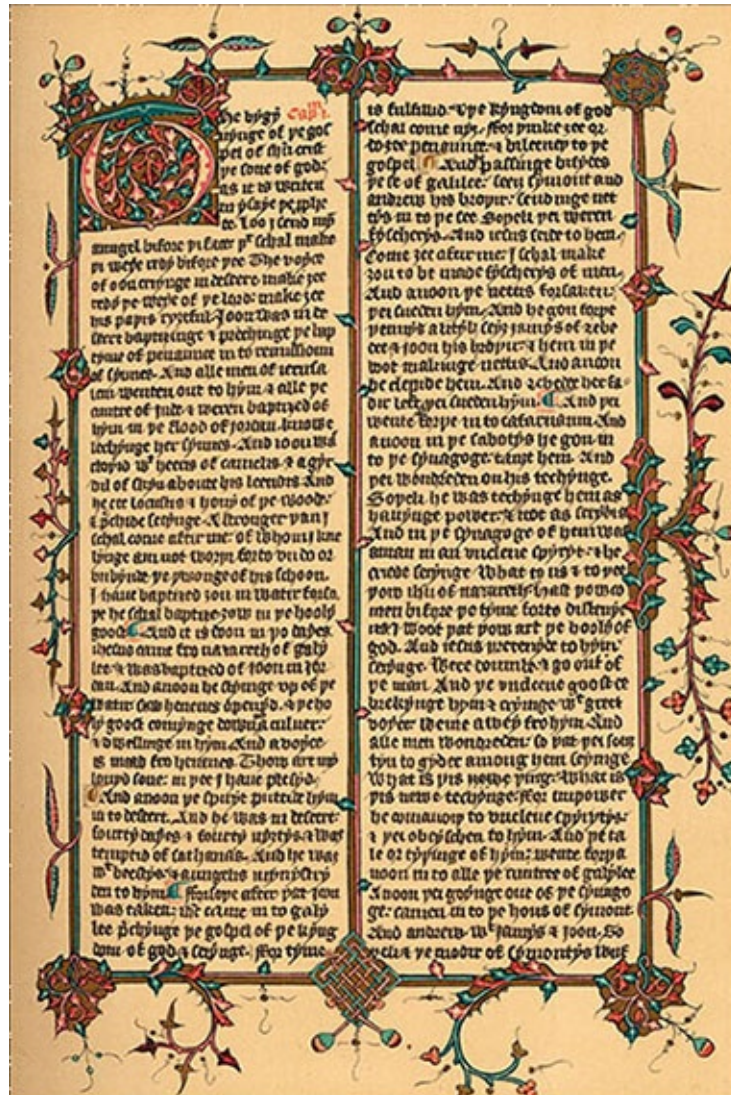 The bygyn Capm 1.
nynge of þe gos
pel of ihu crist
þe sone of god:
as it is writen
in ysaye þe pphe
te. Loo I send myn
aungel bifore þi face: þt schal make
þi weye redy bifore þee The voyce
of oon cryinge in desert: make zee
redy þe weye of þe lord: make zee
his paþis ryztful. Joon was in de
sert baptisinge & prechinge þe bap
tyme of penaunce in to remissioun
of synnes. And alle men of ierusa
lem wenten out to hym: & alle þe
cuntre of jude: & weren baptized of
hym in þe flood of jordan: knowe
lechynge her synnes. And ioon was
cloþid wt heeres of camelis: & a gyr
dil of skyn aboute his leendis And
he eet locustis & hony of þe wood:
& pchide seiynge. A stronger þan I
schal come aftir me: of whom I kne
lynge am not worþi forto vndo or
vnbynde þe þwonge of his schoon.
I haue baptized zou in watir forsoþe
þe he schal baptize zow in þe hooly
goost. And it is doon in þo dayes.
ihesus came fro nazareth of galy
lee: & was baptized of ioon in jor
dan. And anoon he styinge vp of þe
watir: saw heuenes opynyd. & þe ho
ly goost comynge doun as a culuer:
& dwellinge in hym. And a voyce
is maad fro heuenes. Thow art my
louyd sone: in þee I haue plesyd.
And anoon þe spiryt puttide hym
in to desert. And he was in desert:
fourty dayes & fourty nyztis. & was
temptid of sathanas. And he was
wt beestys. & aungelis mynystry
den to hym. fforsoþe after þat joon
was taken: ihc came in to galy
lee pchynge þe gospel of þe kyng
dom of god & seiynge. ffor tyme
is fulfillid. & þe kyngdom of god
schal come nyz. ffor þinke zee or
do zee penaunce: & bileeuey to þe
gospel. And passinge bisydes
þe se of galilee: seez symont and
andrew his broþir: sendinge net
tys in to þe see Soþeli þei weren
fyscherys. And iesus seide to hem.
Come zee aftir me: I schal make
zou to be made fyscherys of men.
And anoon þe nettis forsaken:
þei sueden hym. And he gon forþe
þennys a lityl: seyz jamys of zebe
dee & joon his broþir: & hem in þe
bot makinge nettis. And anoon
he clepide hem. And zebedee her fa
dir left: þei sueden hym. And þei
wente forþe in to cafarnaum. And
anoon in þe sabotys he gon in
to þe synagoge: tauzt hem. And
þei wondreden on his techynge.
Soþeli he was techynge hem as
hauynge power: & not as scrybis
And in þe synagoge of hem was
a man in an vnclene spyryt: & he
criede seiynge What to us & to þee
þow ihu of nazareth: hast þow co
men bifore þe tyme forto distruye
us? I woot þat þow art þe hooly of
god. And iesus þretenyde to hym:
seiynge. Wexe doumb: & go out of
þe man. And þe vnclene goost de
brekynge hym & cryinge wt greet
voyce: wente awey fro hym. And
alle men wondreden: so þat þei souz
tyn to gydre among hem seiynge
What is þis newe þing: What is
þis newe techynge: ffor in power
he comaundiþ to vnclene spyrytys:
& þei obeyschen to hym. And þe ta
le or tyþinge of hym: wente forþ a
noon in to alle þe cuntree of galylee
Anoon þei goynge oute of þe synago
ge: camen in to þe hous of symont.
And andrew. wt jamys & joon. So
þeli & þe modir of symontys wijf